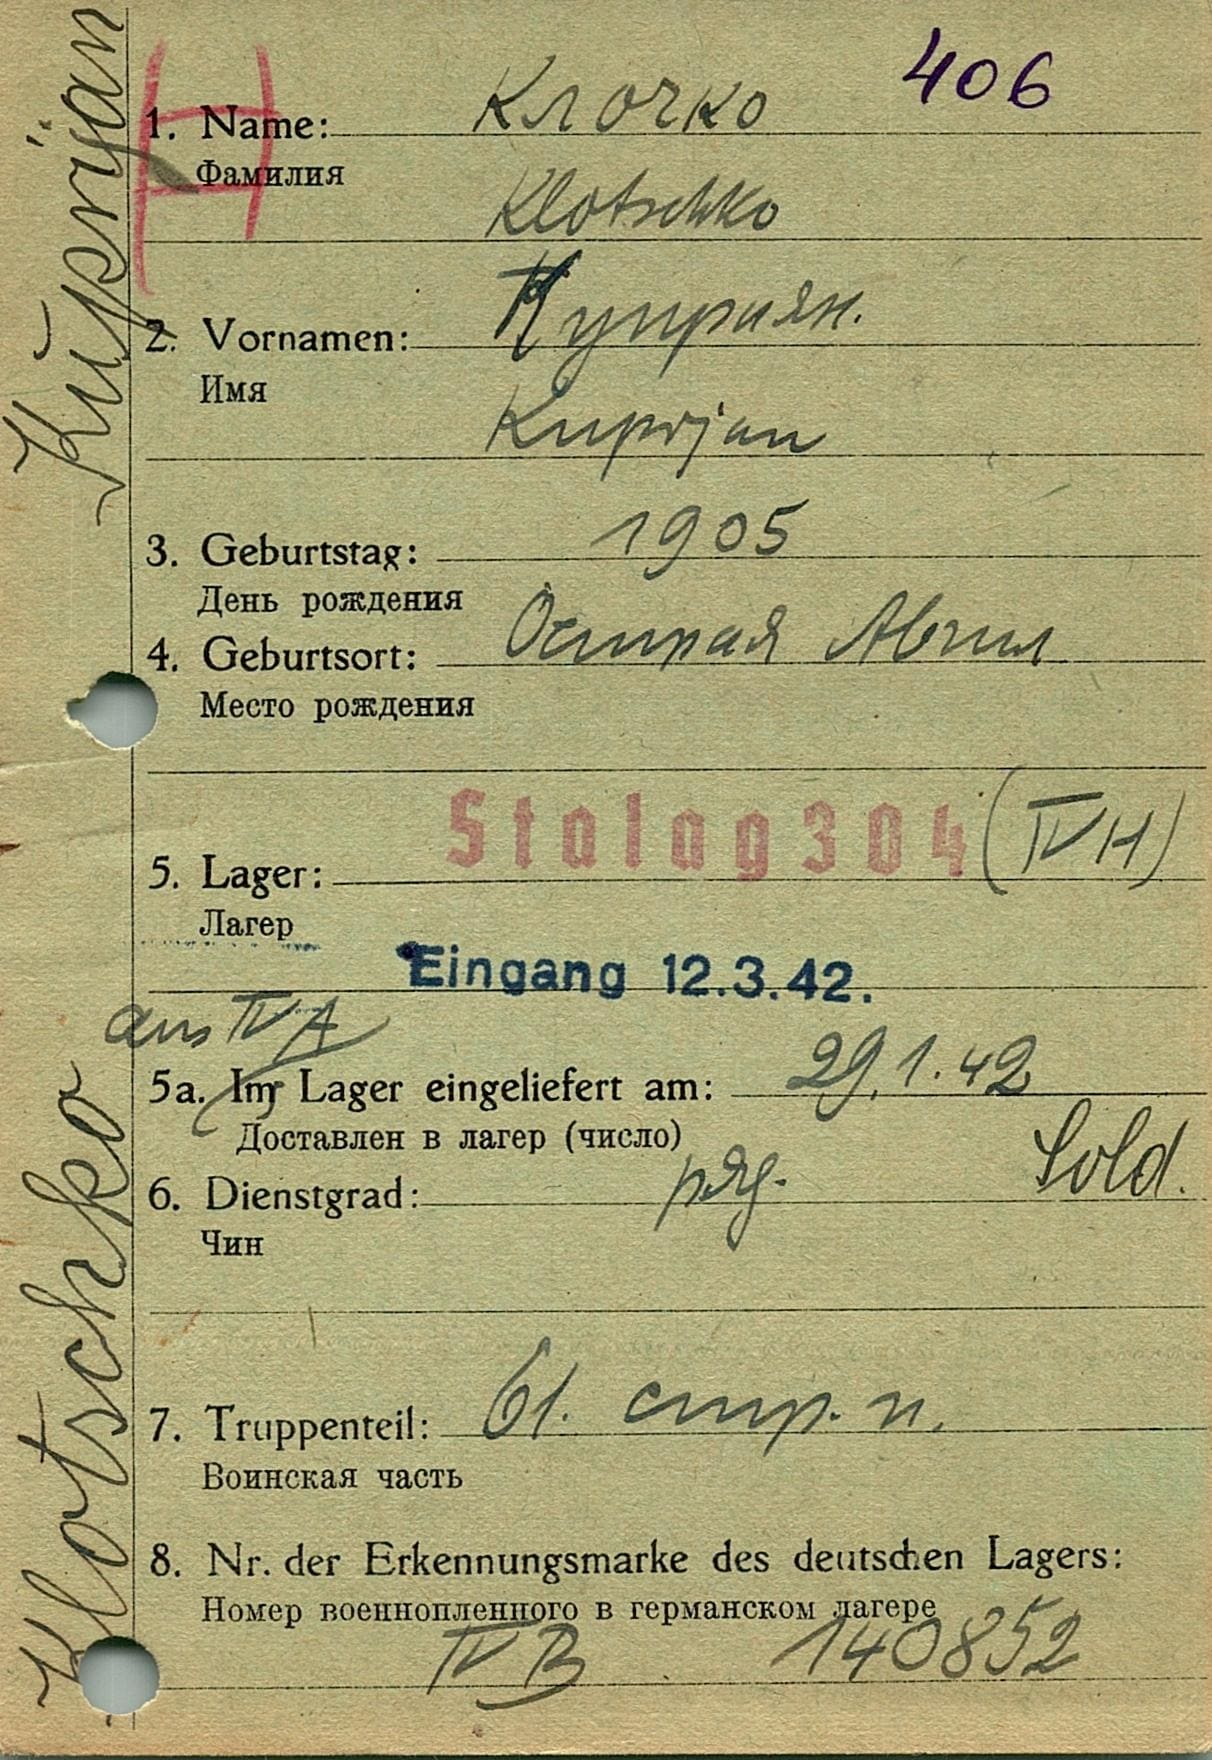 406
1. Name: Клочко
Фамилия
Klotschko
2. Vornamen: Куприян.
Имя
Kuprjan
3. Geburtstag: 1905
День рождения
4. Geburtsort: Острая
Место рождения
5. Lager: Stalag 304 (IV H)
Лагер
Eingang 12.3.42.
aus IV A
5a. Im Lager eingeliefert am: 29.1.42
Доставлен в лагер (число)
6. Dienstgrad: ряд. Sold.
Чин
7. Truppenteil: 61. стр. п.
Воинская часть
8. Nr. der Erkennungsmarke des deutschen Lagers:
Номер военнопленного в германском лагере
IV B 140852
Klotschko Kŭprijan